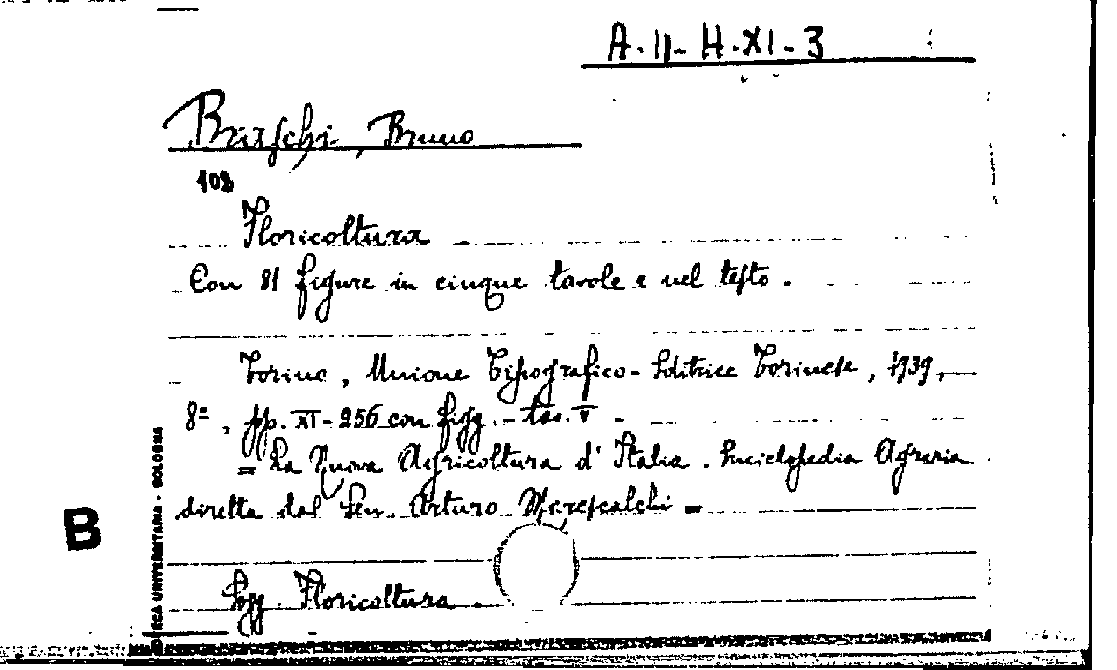 A-II-H-XI-3
Braschi, Bruno
102
Floricoltura
Con 81 figure in cinque tavole e nel testo.
Torino, Unione Tipografico-Editrice Torinese, 1939,
8º, pp. XI-256 con figg. - tav. V -
= La Nuova Agricoltura d'Italia. Enciclopedia Agraria
diretta dal Sen. Arturo Marescalchi =
B
UNIVERSITARIA - BOLOGNA
Sogg. Floricoltura.